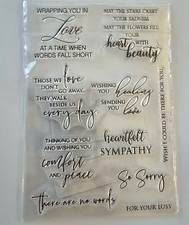 WRAPPING YOU IN
Love
AT A TIME WHEN
WORDS FALL SHORT
MAY THE STARS CARRY
YOUR SADNESS
MAY THE FLOWERS FILL
YOUR
heart WITH
beauty
THOSE WE love
DON'T
GO AWAY,
THEY WALK
BESIDE US
every day
WISHING
YOU healing
SENDING
YOU love
WISH I COULD BE THERE FOR YOU
THINKING OF YOU
AND WISHING YOU
comfort
and peace
heartfelt
SYMPATHY
So Sorry
there are no words
FOR YOUR LOSS